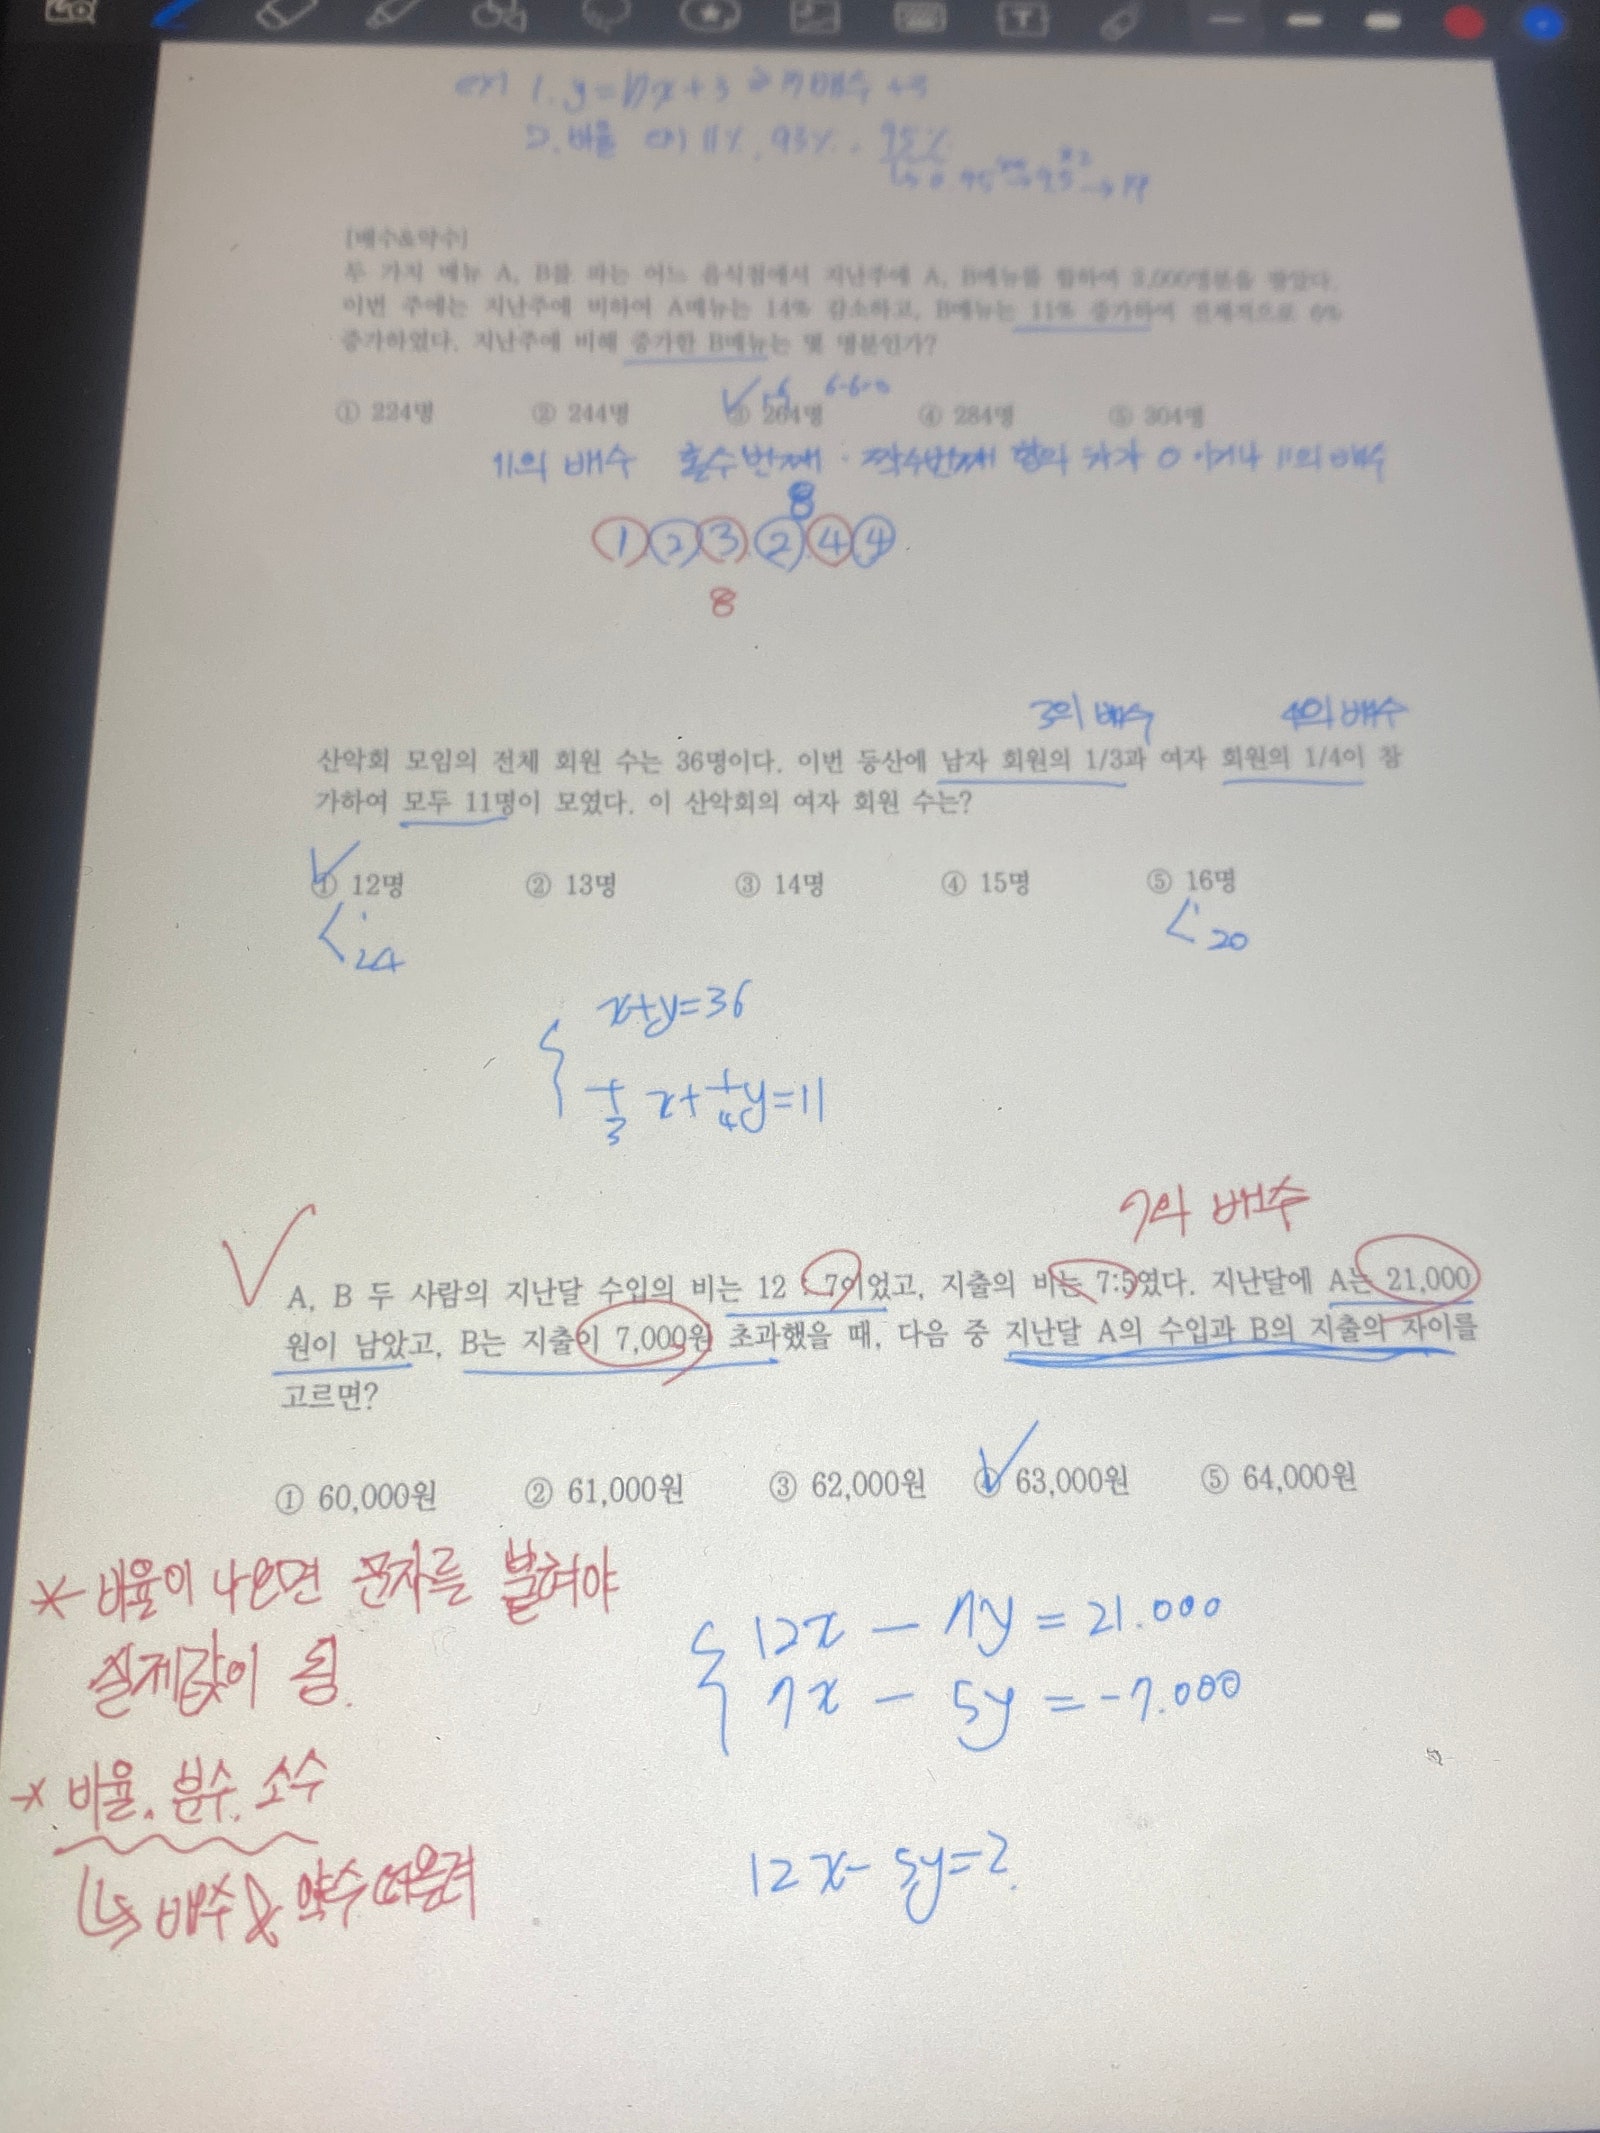 ex) 1. y=17x+3 → 17배수 +3
2. 비율 ex) 11%, 93%, 95%
↳ 0.95 → 95 → 19
[배수&약수]
두 가지 메뉴 A, B를 파는 어느 음식점에서 지난주에 A, B메뉴를 합하여 3,000명분을 팔았다.
이번 주에는 지난주에 비하여 A메뉴는 14% 감소하고, B메뉴는 11% 증가하여 전체적으로 6%
증가하였다. 지난주에 비해 증가한 B메뉴는 몇 명분인가?
6-6=0
① 224명 ② 244명 ③ 264명 ④ 284명 ⑤ 304명
11의 배수 홀수번째 · 짝수번째 합의 차가 0 이거나 11의 배수
8
1 2 3 2 4 4
8
3의 배수 4의 배수
산악회 모임의 전체 회원 수는 36명이다. 이번 등산에 남자 회원의 1/3과 여자 회원의 1/4이 참
가하여 모두 11명이 모였다. 이 산악회의 여자 회원 수는?
① 12명 ② 13명 ③ 14명 ④ 15명 ⑤ 16명
24 20
x+y=36
1/3 x+1/4 y=11
7의 배수
A, B 두 사람의 지난달 수입의 비는 12 : 7이었고, 지출의 비는 7:5였다. 지난달에 A는 21,000
원이 남았고, B는 지출이 7,000원 초과했을 때, 다음 중 지난달 A의 수입과 B의 지출의 차이를
고르면?
① 60,000원 ② 61,000원 ③ 62,000원 ④ 63,000원 ⑤ 64,000원
* 비율이 나오면 문자를 붙여야
실제값이 됨.
12x - 7y = 21.000
7x - 5y = -7.000
* 비율. 분수. 소수
↳ 배수 & 약수 떠올려
12x-5y=?